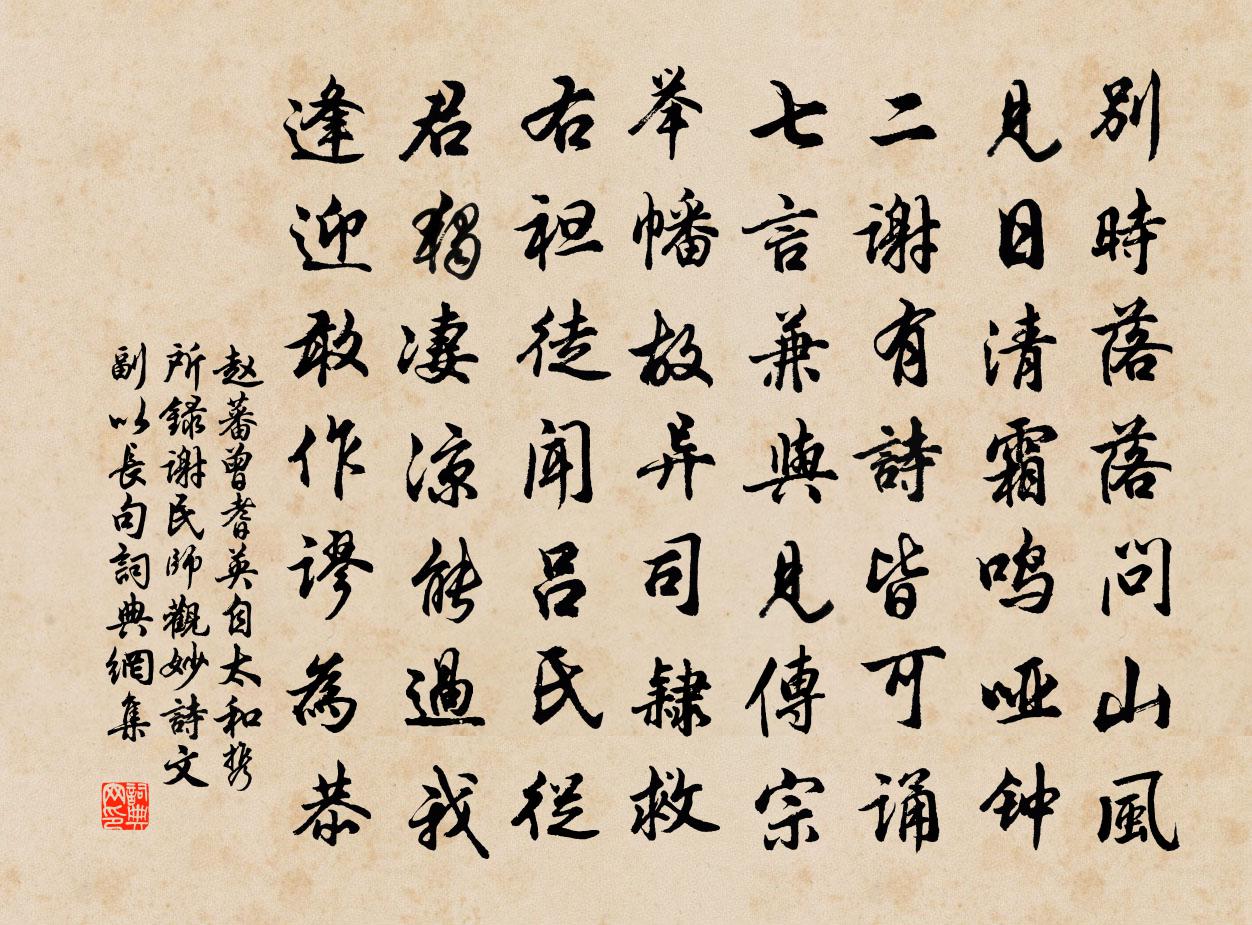 別時落落問山風
見日清霜鳴哑钟
二謝有詩皆可诵
七言兼與見傳宗
举幡故异司隸救
右袒徒聞吕氏從
君獨凄涼能過我
逢迎敢作谬為恭
赵蕃曾耆英自太和携
所録谢民師觀妙詩文
副以長句詞典網集
詞典网印